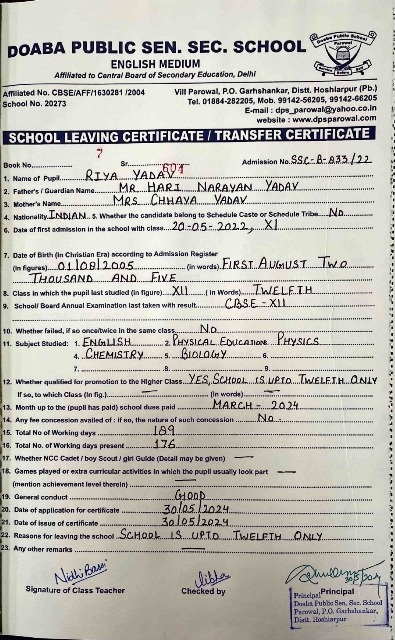 DOABA PUBLIC SEN. SEC. SCHOOL
ENGLISH MEDIUM
Affiliated to Central Board of Secondary Education, Delhi
Doaba Public School
Parowal
Affiliated No. CBSE/AFF/1630281 /2004
School No. 20273
Vill Parowal, P.O. Garhshankar, Distt. Hoshiarpur (Pb.)
Tel. 01884-282205, Mob. 99142-56205, 99142-66205
E-mail : dps_parowal@yahoo.co.in
website : www.dpsparowal.com
SCHOOL LEAVING CERTIFICATE / TRANSFER CERTIFICATE
Book No. 7 Sr. 601 Admission No. SSC-B-833/22
1. Name of Pupil RIYA YADAV
2. Father's / Guardian Name MR. HARI NARAYAN YADAV
3. Mother's Name MRS CHHAYA YADAV
4. Nationality INDIAN 5. Whether the candidate belong to Schedule Caste or Schedule Tribe No
6. Date of first admission in the school with class 20-05-2022, XI
7. Date of Birth (in Christian Era) according to Admission Register
(in figures) 01/08/2005 (in words) FIRST AUGUST TWO
THOUSAND AND FIVE
8. Class in which the pupil last studied (in figure) XII (in Words) TWELFTH
9. School/ Board Annual Examination last taken with result CBSE-XII
10. Whether failed, if so once/twice in the same class NO
11. Subject Studied : 1. ENGLISH 2. PHYSICAL EDUCATION 3. PHYSICS
4. CHEMISTRY 5. BIOLOGY 6.
7. 8. 9.
12. Whether qualified for promotion to the Higher Class YES, SCHOOL IS UPTO TWELFTH ONLY
If so, to which Class (in fig.) — (in words) —
13. Month up to the (pupil has paid) school dues paid MARCH - 2024
14. Any fee concession availed of : if so, the nature of such concession No
15. Total No. of Working days 189
16. Total No. of Working days present 176
17. Whether NCC Cadet / boy Scout / girl Guide (Detail may be given) —
18. Games played or extra curricular activities in which the pupil usually look part —
(mention achievement level therein) —
19. General conduct GOOD
20. Date of application for certificate 30/05/2024
21. Date of issue of certificate 30/05/2024
22. Reasons for leaving the school SCHOOL IS UPTO TWELFTH ONLY
23. Any other remarks —
Nidhi Bassi
Signature of Class Teacher
Checked by
Principal
Principal
Doaba Public Sen. Sec. School
Parowal, P.O. Garhshankar,
Distt. Hoshiarpur